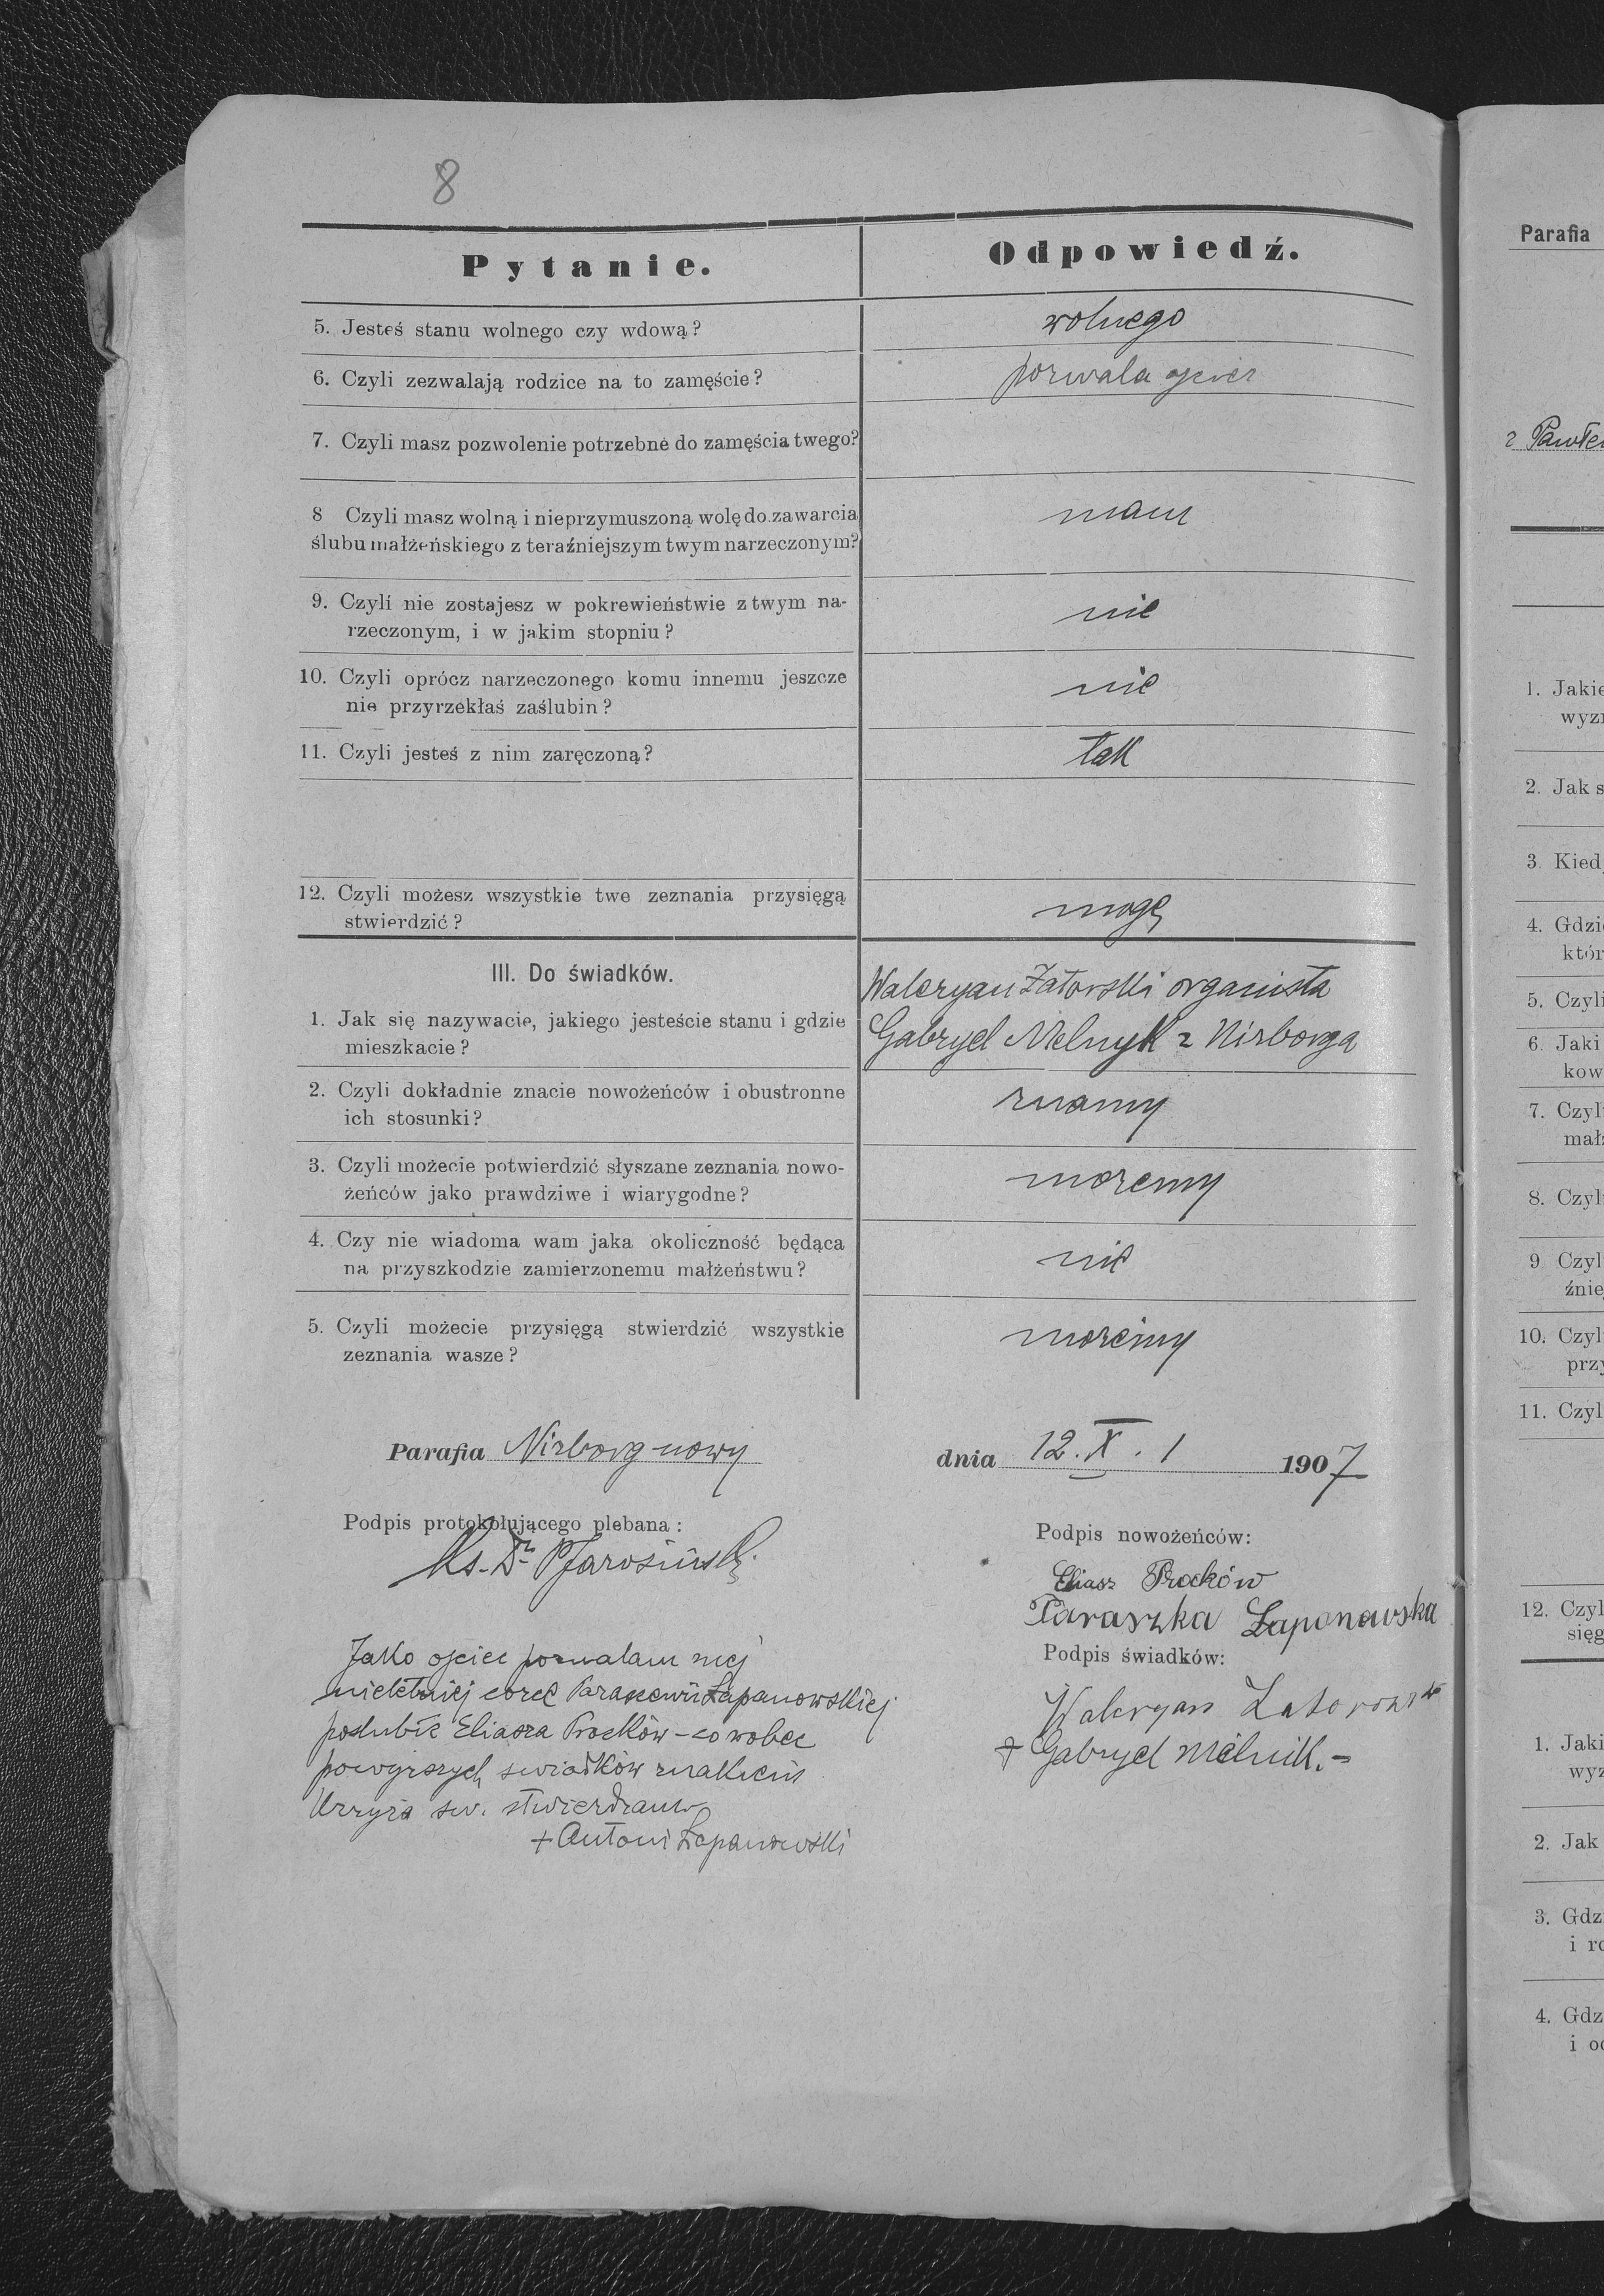 8
Pytanie.
Odpowiedź.
5. Jesteś stanu wolnego czy wdową?
wolnego
6. Czyli zezwalają rodzice na to zamęście?
pozwala ojciec
7. Czyli masz pozwolenie potrzebne do zamęścia twego?
8 Czyli masz wolną i nieprzymuszoną wolę do zawarcia
ślubu małżeńskiego z teraźniejszym twym narzeczonym?
mam
9. Czyli nie zostajesz w pokrewieństwie z twym na-
rzeczonym, i w jakim stopniu?
nie
10. Czyli oprócz narzeczonego komu innemu jeszcze
nie przyrzekłaś zaślubin?
nie
11. Czyli jesteś z nim zaręczoną?
tak
12. Czyli możesz wszystkie twe zeznania przysięgą
stwierdzić?
mogę
III. Do świadków.
1. Jak się nazywacie, jakiego jesteście stanu i gdzie
mieszkacie?
Waleryan Zatorski organista
Gabryel Melnyk z Niżborga
2. Czyli dokładnie znacie nowożeńców i obustronne
ich stosunki?
znamy
3. Czyli możecie potwierdzić słyszane zeznania nowo-
żeńców jako prawdziwe i wiarygodne?
możemy
4. Czy nie wiadoma wam jaka okoliczność będąca
na przyszkodzie zamierzonemu małżeństwu?
nie
5. Czyli możecie przysięgą stwierdzić wszystkie
zeznania wasze?
możemy
Parafia Nizborg nowy
dnia 12. X. 1 1907
Podpis protokołującego plebana:
Ks. Dr PJarosiński
Podpis nowożeńców:
Eliasz Proćków
Paraszka Łapanowska
Podpis świadków:
Waleryan Zatorski
+ Gabryel Melnik.-
Jako ojciec pozwalam mej
nieletniej córce Parascewii Łapanowskiej
poślubić Eliasza Proćków - co wobec
powyższych świadków znakiem
Krzyża św. stwierdzam
+ Antoni Łapanowski
Parafia
z Pawłe
1. Jakie
wyzn
2. Jak s
3. Kied
4. Gdzi
któr
5. Czyli
6. Jaki
kow
7. Czyl
małż
8. Czyl
9 Czyl
źnie
10. Czyl
przy
11. Czyl
12. Czyl
sięg
1. Jaki
wyz
2. Jak
3. Gdz
i ro
4. Gdz
i oc